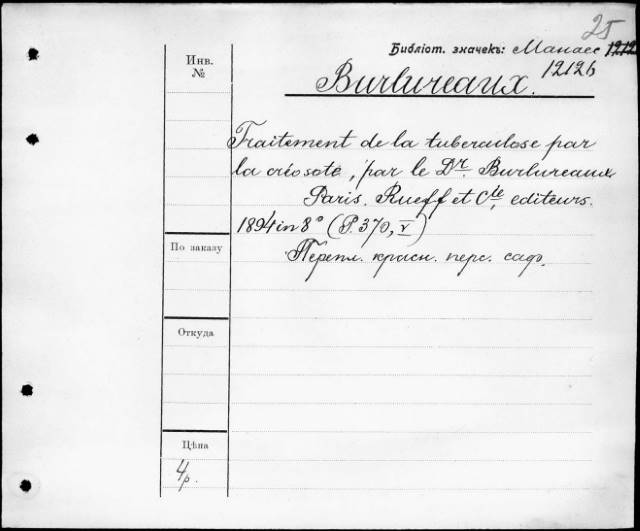 25
Библіот. значекъ: Манасе
12126
Инв.
№
Burlureaux.
Traitement de la tuberculose par
la créosote, par le Dr. Burlureaux
Paris. Rueff et Cie, editeurs.
1894 in 8° (P. 370, V)
По заказу
Перепл. красн. перс. саф.
Откуда
Цѣна
4р.